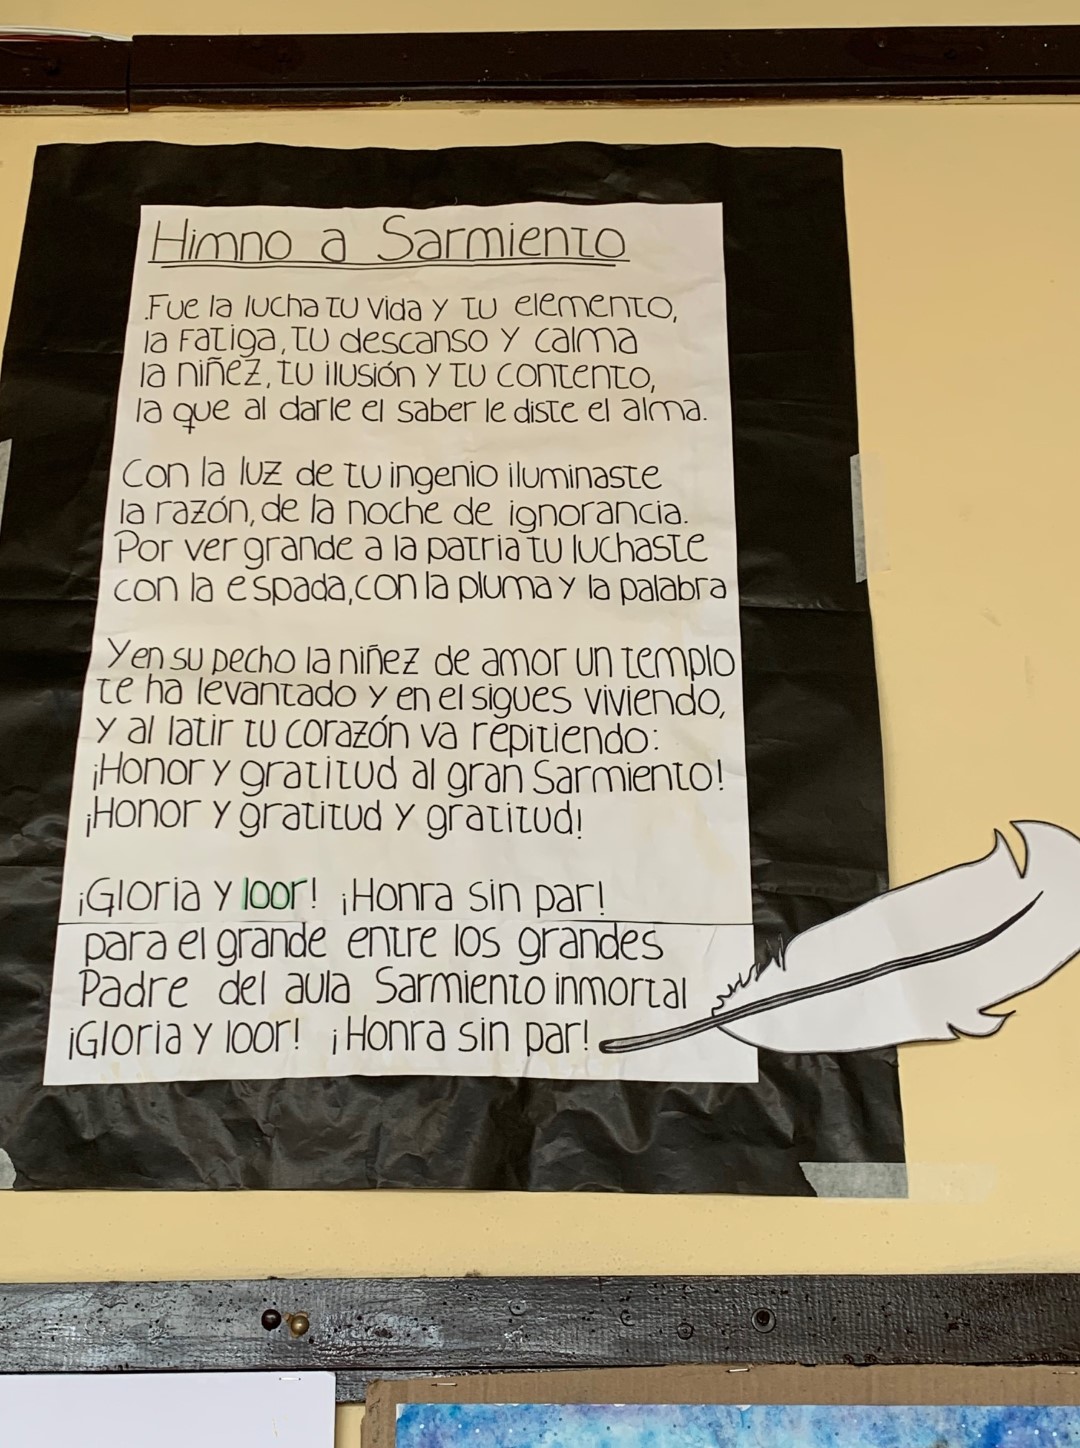 Himno a Sarmiento
.Fue la lucha tu vida y tu elemento,
la fatiga, tu descanso y calma
la niñez, tu ilusión y tu contento,
la que al darle el saber le diste el alma.
Con la luz de tu ingenio iluminaste
la razón, de la noche de ignorancia.
Por ver grande a la patria tu luchaste
con la espada, con la pluma y la palabra
Y en su pecho la niñez de amor un templo
te ha levantado y en el sigues viviendo,
y al latir tu corazón va repitiendo:
¡Honor y gratitud al gran Sarmiento!
¡Honor y gratitud y gratitud!
¡Gloria y loor! ¡Honra sin par!
para el grande entre los grandes
Padre del aula Sarmiento inmortal
¡Gloria y loor! ¡Honra sin par!